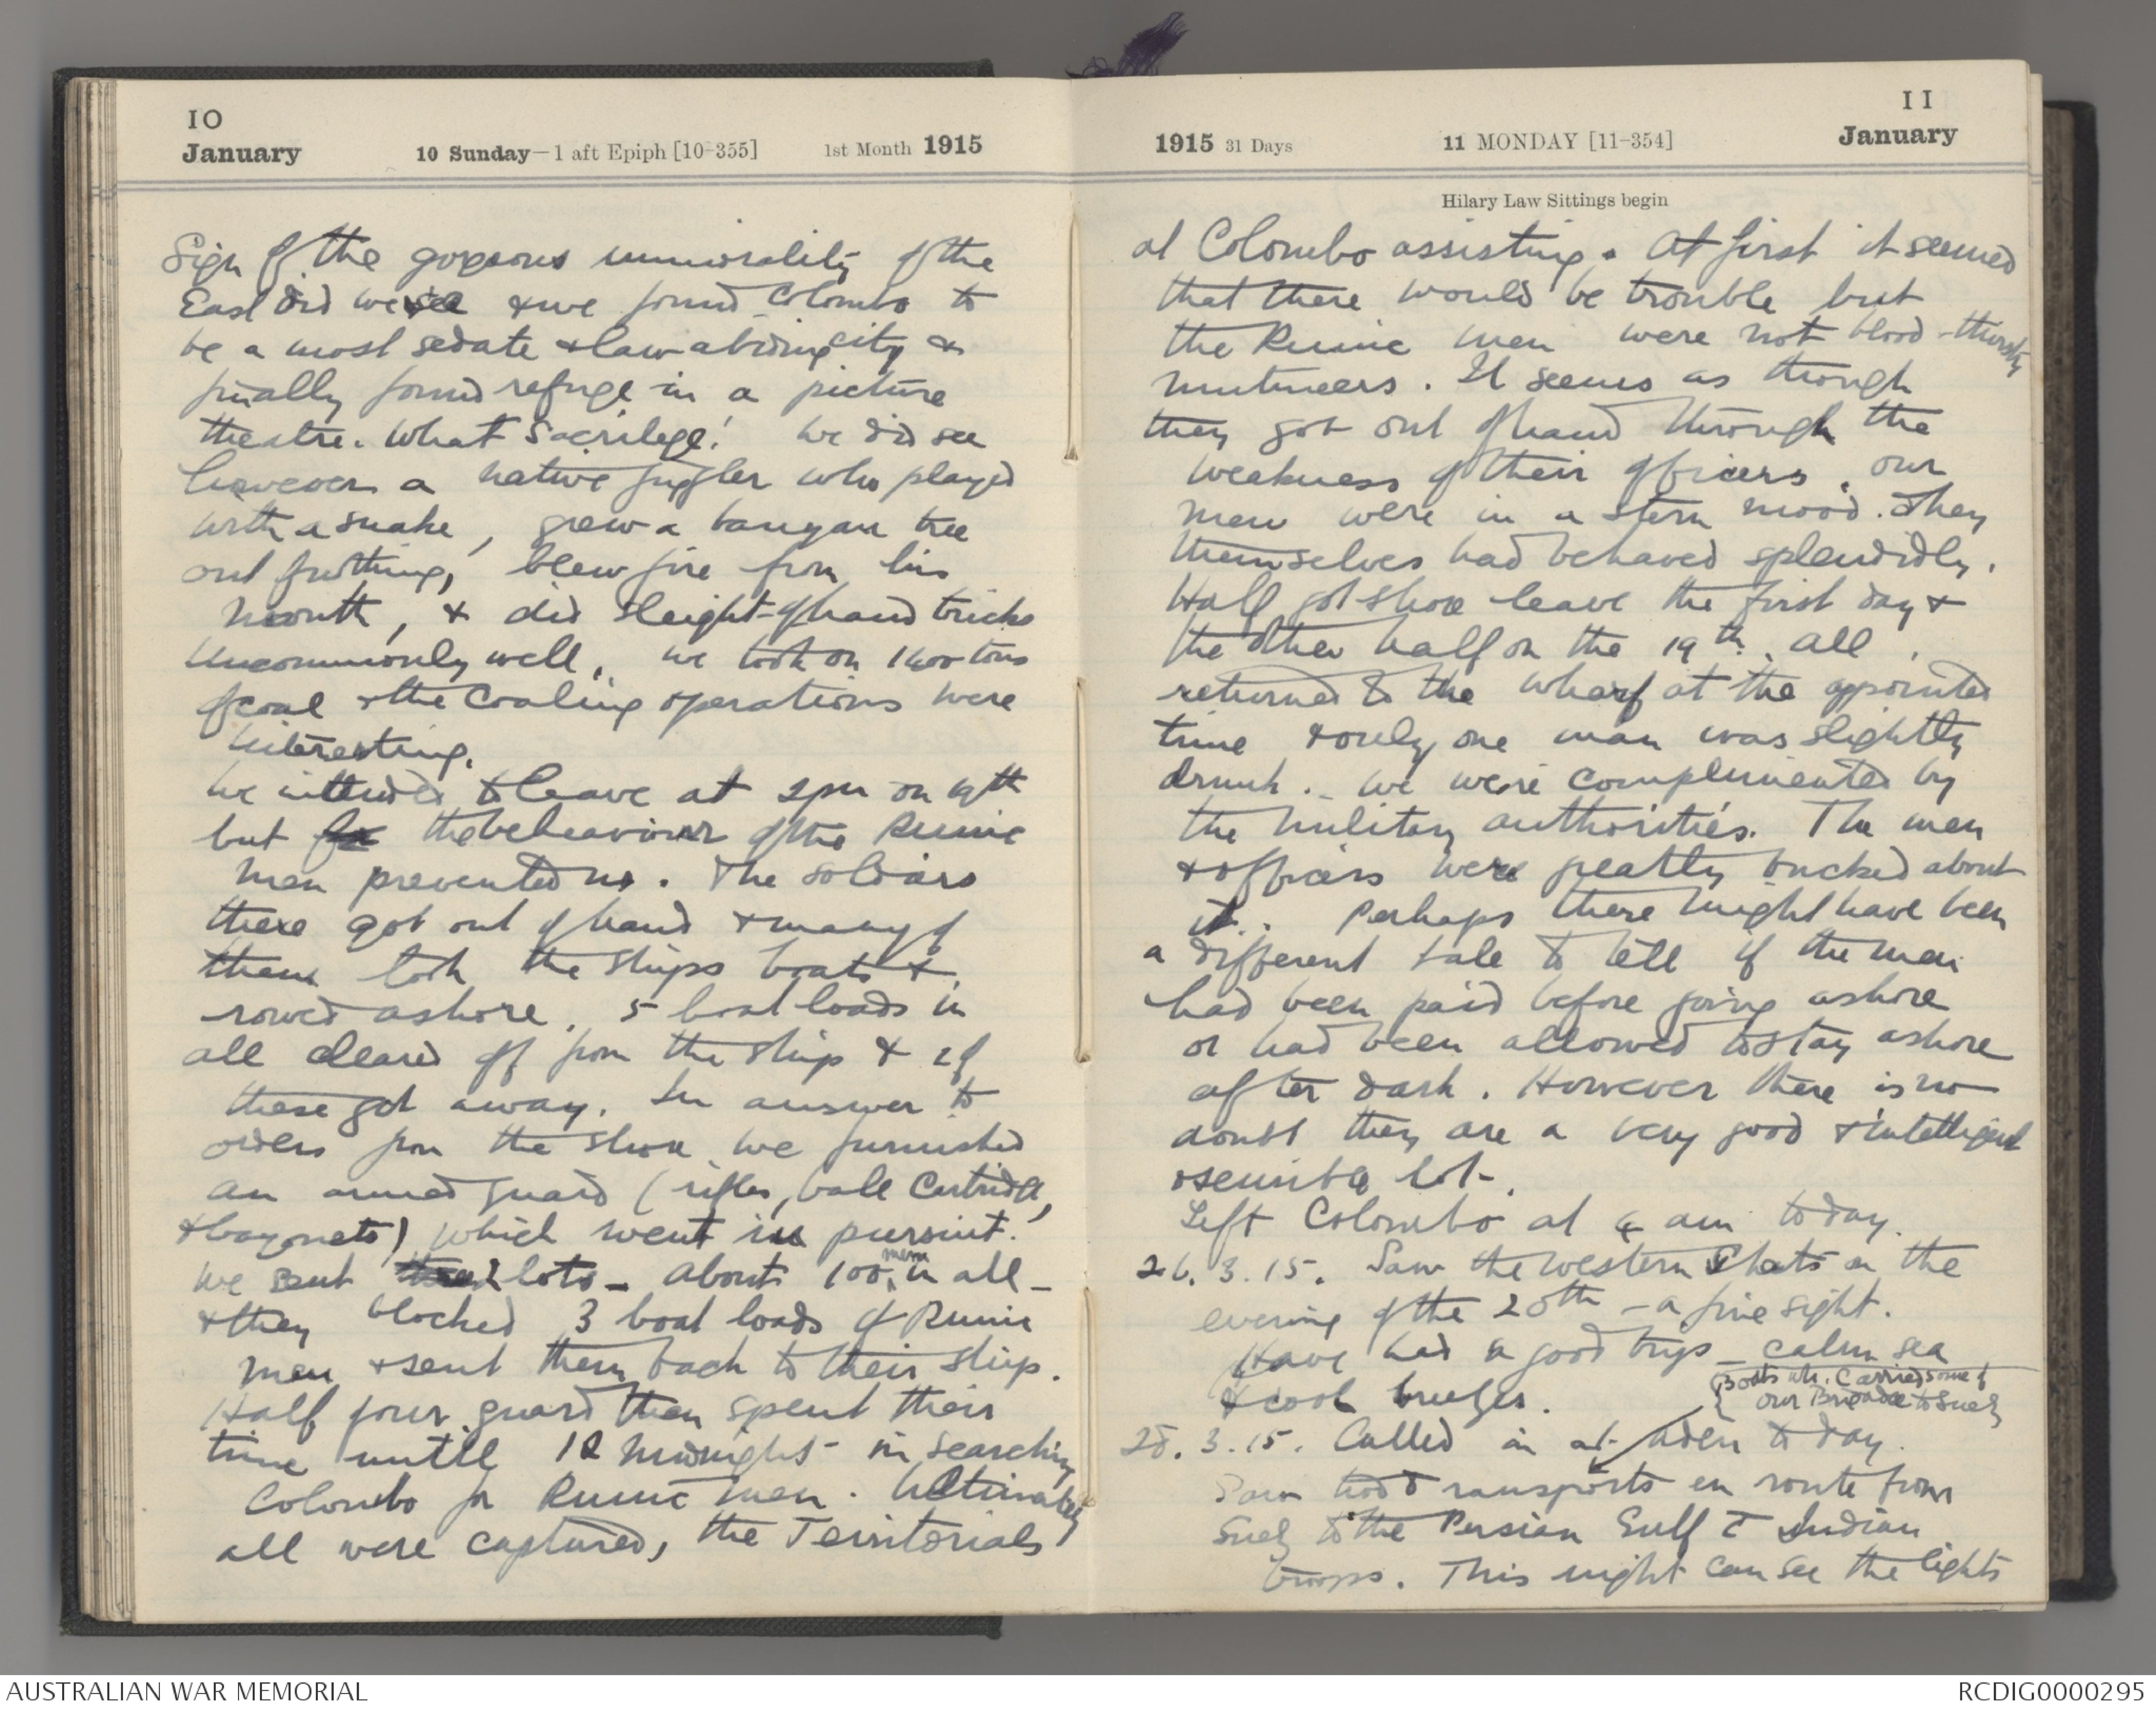 10
January
10 Sunday—1 aft Epiph [10-355]
1st Month 1915
Sign of the gorgeous immorality of the
East did we see & we found Colombo to
be a most sedate & law abiding city &
finally found refuge in a picture
theatre. What Sacrilege! We did see
however a native juggler who played
with a snake, grew a banyan tree
out of nothing, blew fire from his
mouth, & did sleight-of hand tricks
uncommonly well. We took on 1400 tons
of coal & the coaling operations were
interesting.
We intended to leave at 2pm on 19th
but the behaviour of the Runic
men prevented us. The soldiers
there got out of hand & many of
them took the ships boats &
rowed ashore. 5 boat loads in
all cleared off from the ship & 2 of
these got away. In answer to
orders from the shore we furnished
an armed guard (rifles, ball cartridge,
& bayonets) which went in pursuit.
We sent 2 lots – about 100 men in all –
& they blocked 3 boat loads of Runic
men & sent them back to their ship.
Half of our guard then spent their
time until 12 midnight in searching
Colombo for Runic men. Ultimately
all were captured, the Territorials
11
January
1915 31 Days
11 MONDAY [11-354]
Hilary Law Sittings begin
at Colombo assisting. At first it seemed
that there would be trouble but
the Runic men were not blood-thirsty
mutineers. It seems as though
they got out of hand through the
weakness of their officers. Our
men were in a stern mood. They
themselves had behaved splendidly.
Half got shore leave the first day &
the other half on the 19th. All
returned to the wharf at the appointed
time & only one man was slightly
drunk. – We were complimented by
the military authorities. The men
& officers were greatly bucked about
it. Perhaps there might have been
a different tale to tell if the men
had been paid before going ashore
or had been allowed to stay ashore
after dark. However there is no
doubt they are a very good & intelligent
& sensible lot.
Left Colombo at am today.
26.3.15. Saw the western Ghats on the
evening of the 25th – a fine sight.
Have had a good trip – calm sea
& cool breezes.
{Boats wh. carried some of
our Brigade to Suez
28.3.15. Called in at Aden to day.
Saw two transports en route from
Suez to the Persian Gulf c̄ Indian
troops. This night can see the lights
AUSTRALIAN WAR MEMORIAL
RCDIG0000295